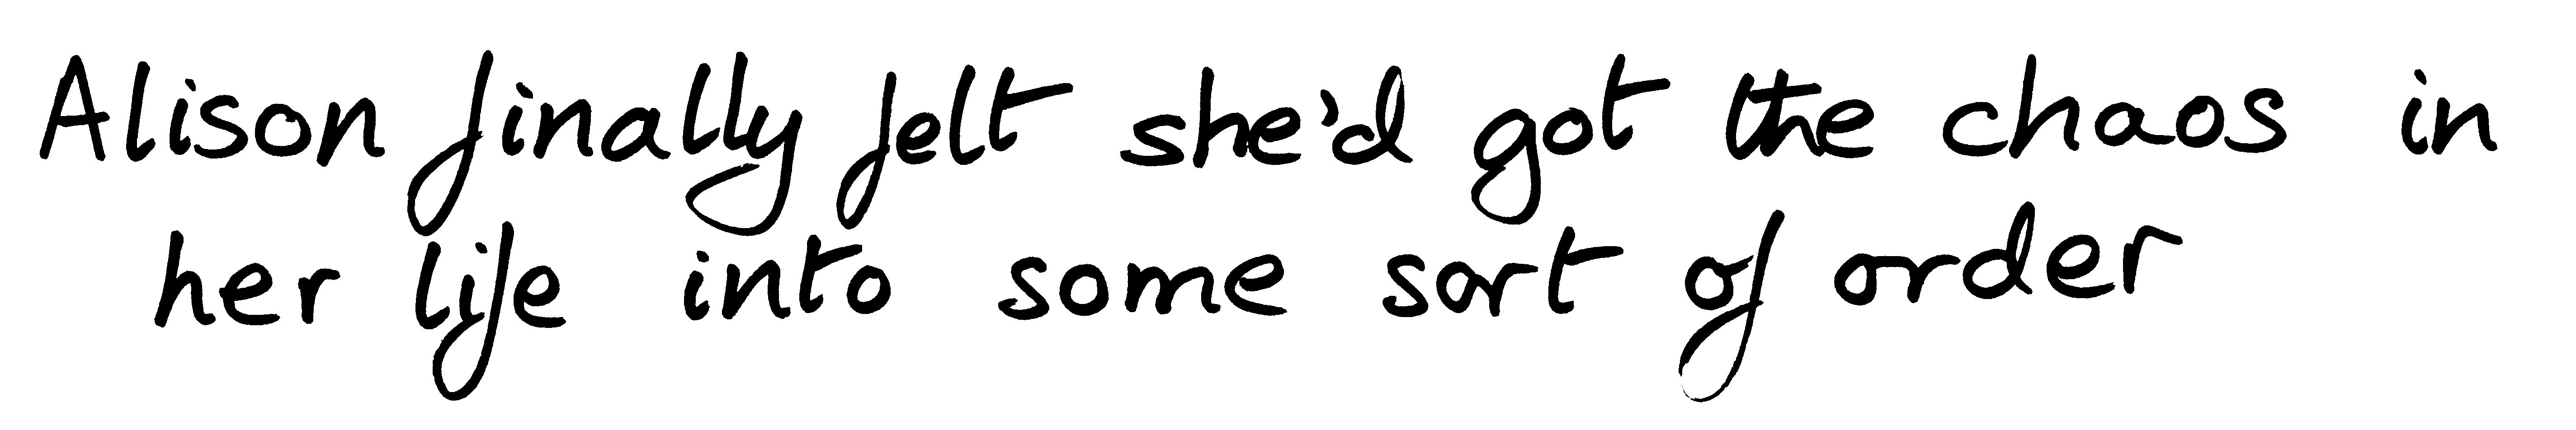 Alison finally felt she'd got the chaos in
her life into some sort of order